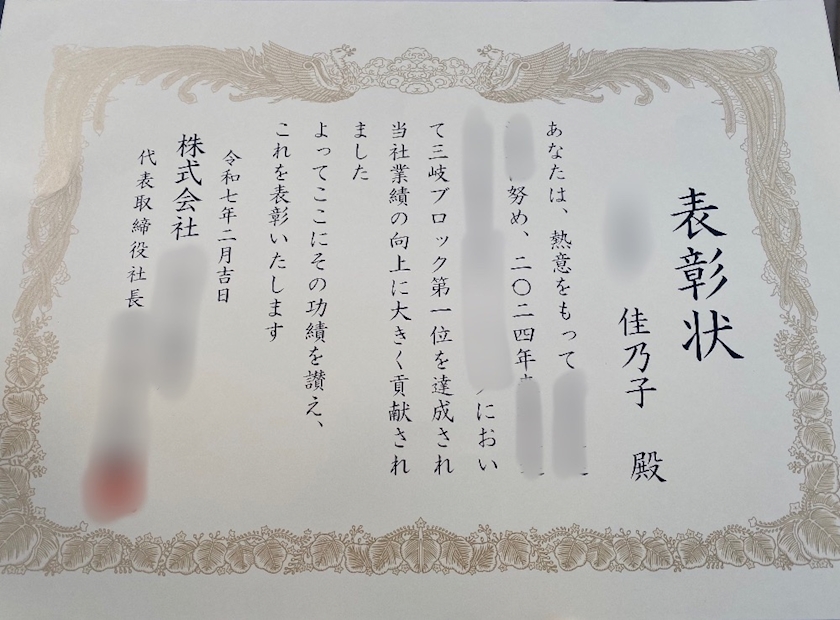 表彰状
佳乃子 殿
あなたは、熱意をもって
努め、二〇二四年
におい
て三岐ブロック第一位を達成され
当社業績の向上に大きく貢献され
ました
よってここにその功績を讃え、
これを表彰いたします
令和七年二月吉日
株式会社
代表取締役社長